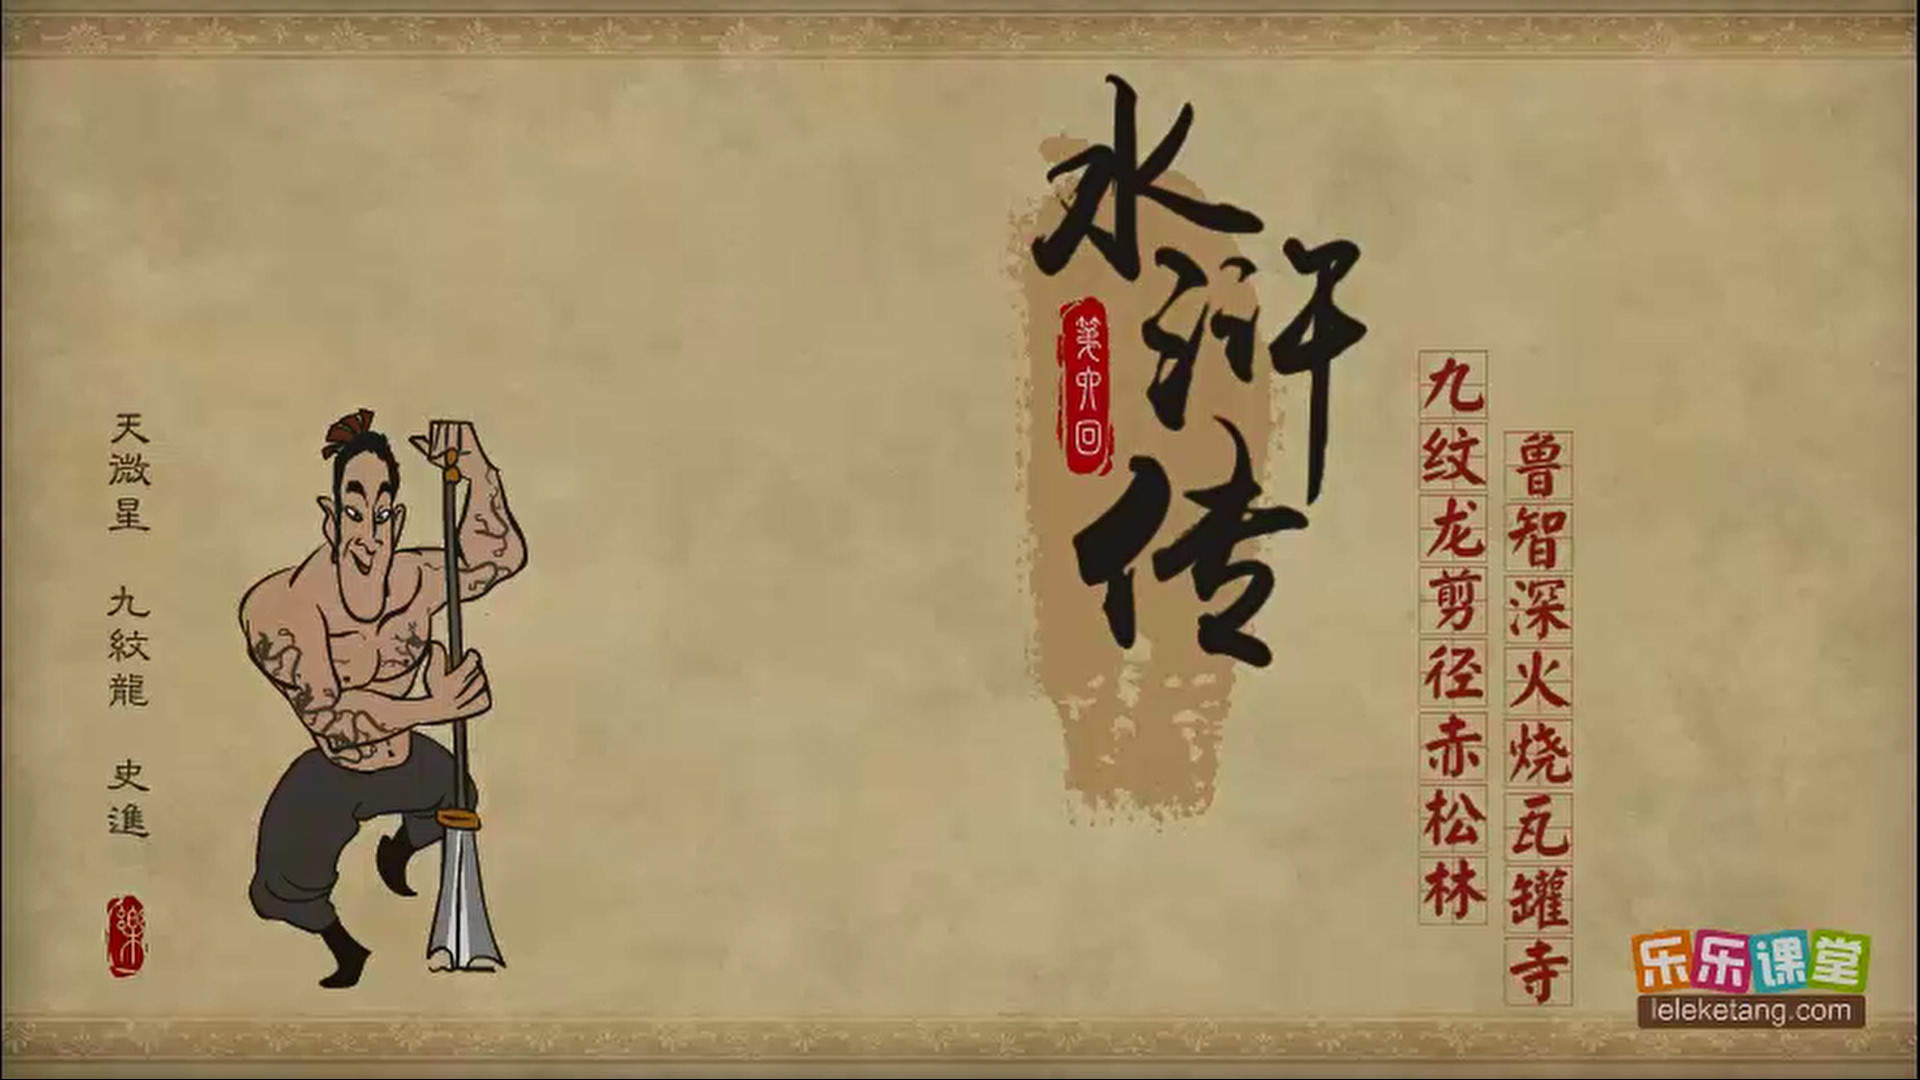 水浒传
第六回
九纹龙剪径赤松林
鲁智深火烧瓦罐寺
天微星 九紋龍 史進
樂
乐乐课堂
leleketang.com